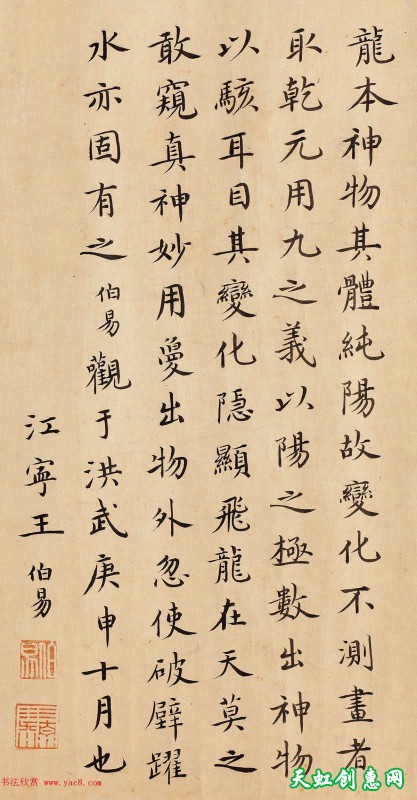 龍本神物其體純陽故變化不測畫者
取乾元用九之義以陽之極數出神物
以駭耳目其變化隱顯飛龍在天莫之
敢窺真神妙用愛出物外忽使破壁躍
水亦固有之伯易觀于洪武庚申十月也
江寧王伯易
书法欣赏 www.yac8.com
天虹创惠网